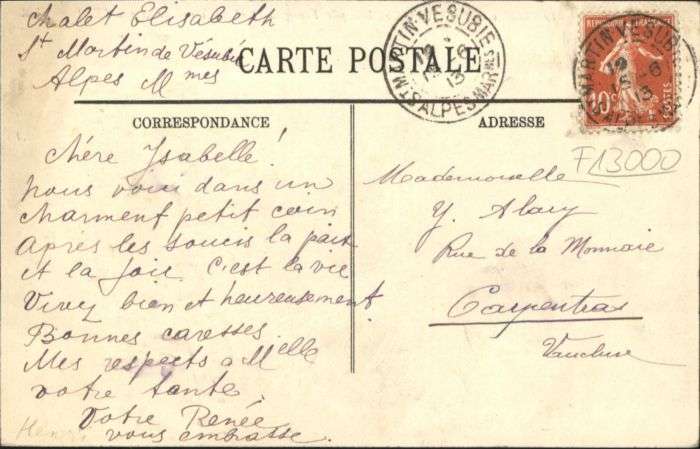 chalet Elisabeth
St Martin de Vésubie
Alpes Mmes
CARTE POSTALE
ST MARTIN-VESUBIE
2 -6
13
ALPES-MARMES
REPUBLIQUE FRANCAISE
10c
POSTES
ST MARTIN-VESUBIE
-6
13
CORRESPONDANCE
ADRESSE
F13000
Chére Isabelle!
Nous voici dans un
charment petit coin
après les soucis la paix
et la joie c'est la vie
Vivez bien et heureusement.
Bonnes caresses.
Mes respects a Melle
votre tante.
Votre Renée
vous embrasse.
Mademoiselle
Y. Alary
Rue de la Monnaie
Carpentras
Vaucluse